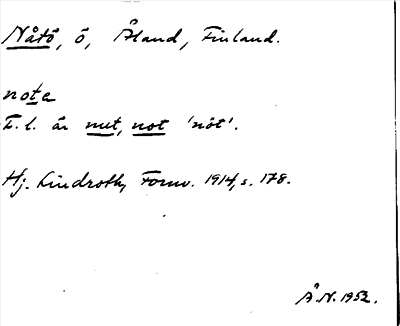 Nåtö, ö, Åland, Finland.
note
F.l. är nut, not 'nöt'.
Hj. Lindroth, Fornv. 1914, s. 178.
Å.N. 1952.